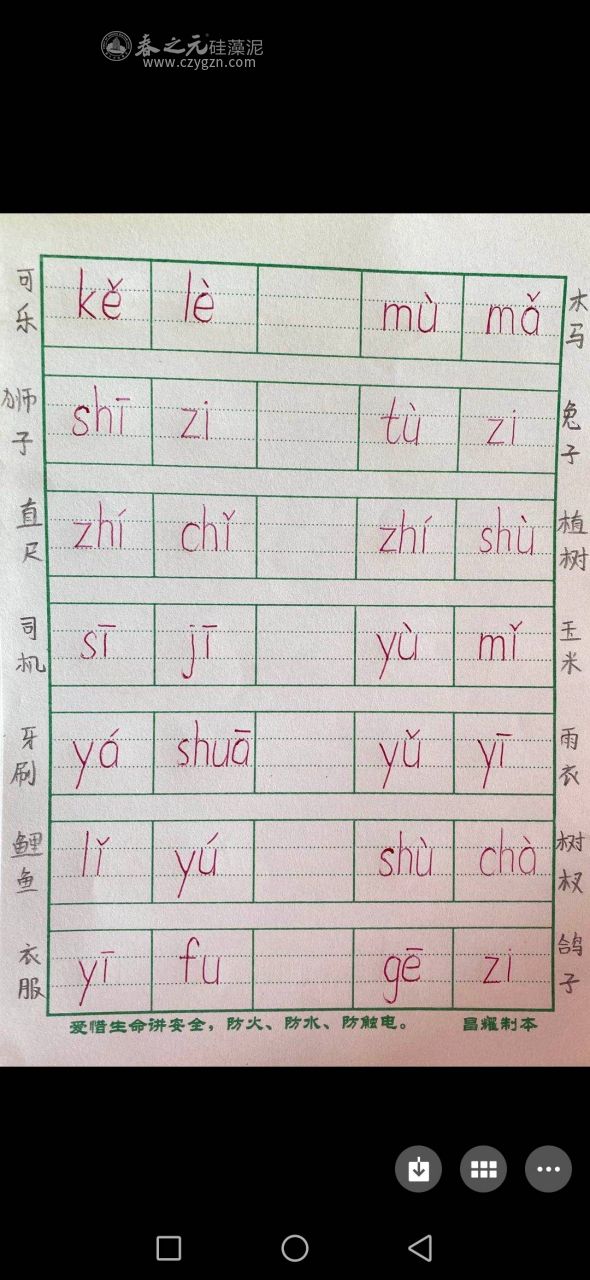 春之元硅藻泥
www.czygzn.com
可乐 kě lè mù mǎ 木马
狮子 shī zi tù zi 兔子
直尺 zhí chǐ zhí shù 植树
司机 sī jī yù mǐ 玉米
牙刷 yá shuā yǔ yī 雨衣
鲤鱼 lǐ yú shù chà 树杈
衣服 yī fu gē zi 鸽子
爱惜生命讲安全，防火、防水、防触电。 昌耀制本